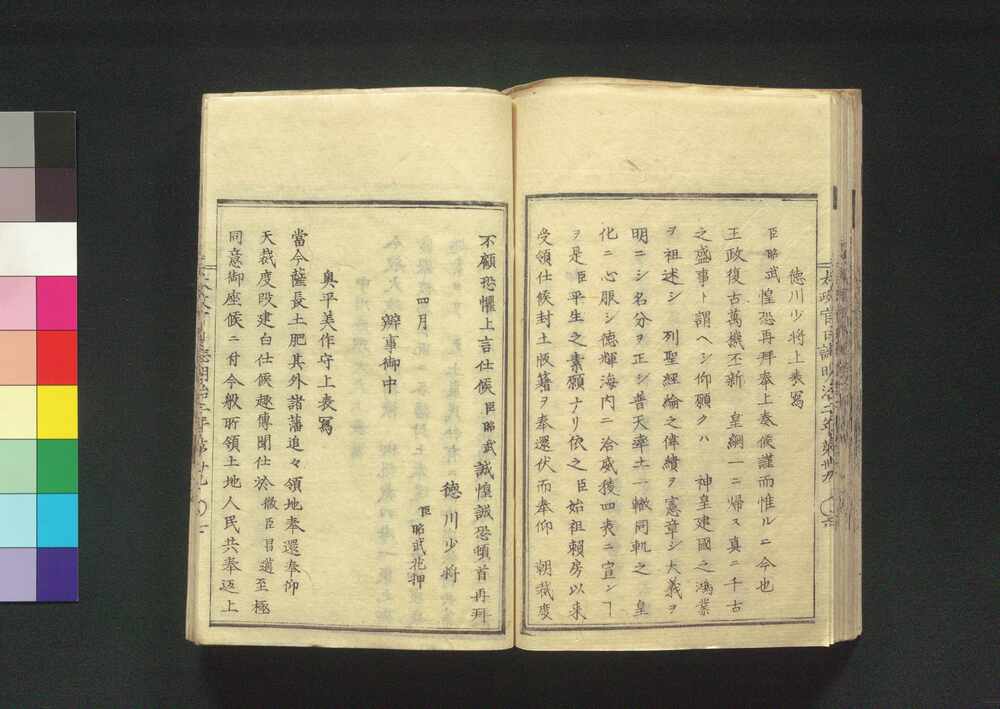 德川少将上表寫
臣昭武惶恐再拜奉上奏候謹而惟ルニ今也
王政復古萬機丕新　皇綱一ニ帰ス真ニ千古
之盛事ト謂ヘシ仰願クハ　神皇建國之鴻業
ヲ祖述シ　列聖經綸之偉績ヲ憲章シ大義ヲ
明ニシ名分ヲ正シ普天率土一轍同軌之　皇
化ニ心服シ德輝海内ニ洽威稜四表ニ宣シヿ
ヲ是臣平生之素願ナリ依之臣始祖頼房以来
受領仕候封土版籍ヲ奉還伏而奉仰　朝裁度
不顧恐懼上言仕候臣昭武誠惶誠恐頓首再拜
德川少将
臣昭武花押
四月
辨事御中
奥平美作守上表寫
當今薩長土肥其外諸藩追々領地奉還奉仰
天裁度段建白仕候趣傳聞仕於微臣昌邁至極
同意御座候ニ付今般所領土地人民共奉返上